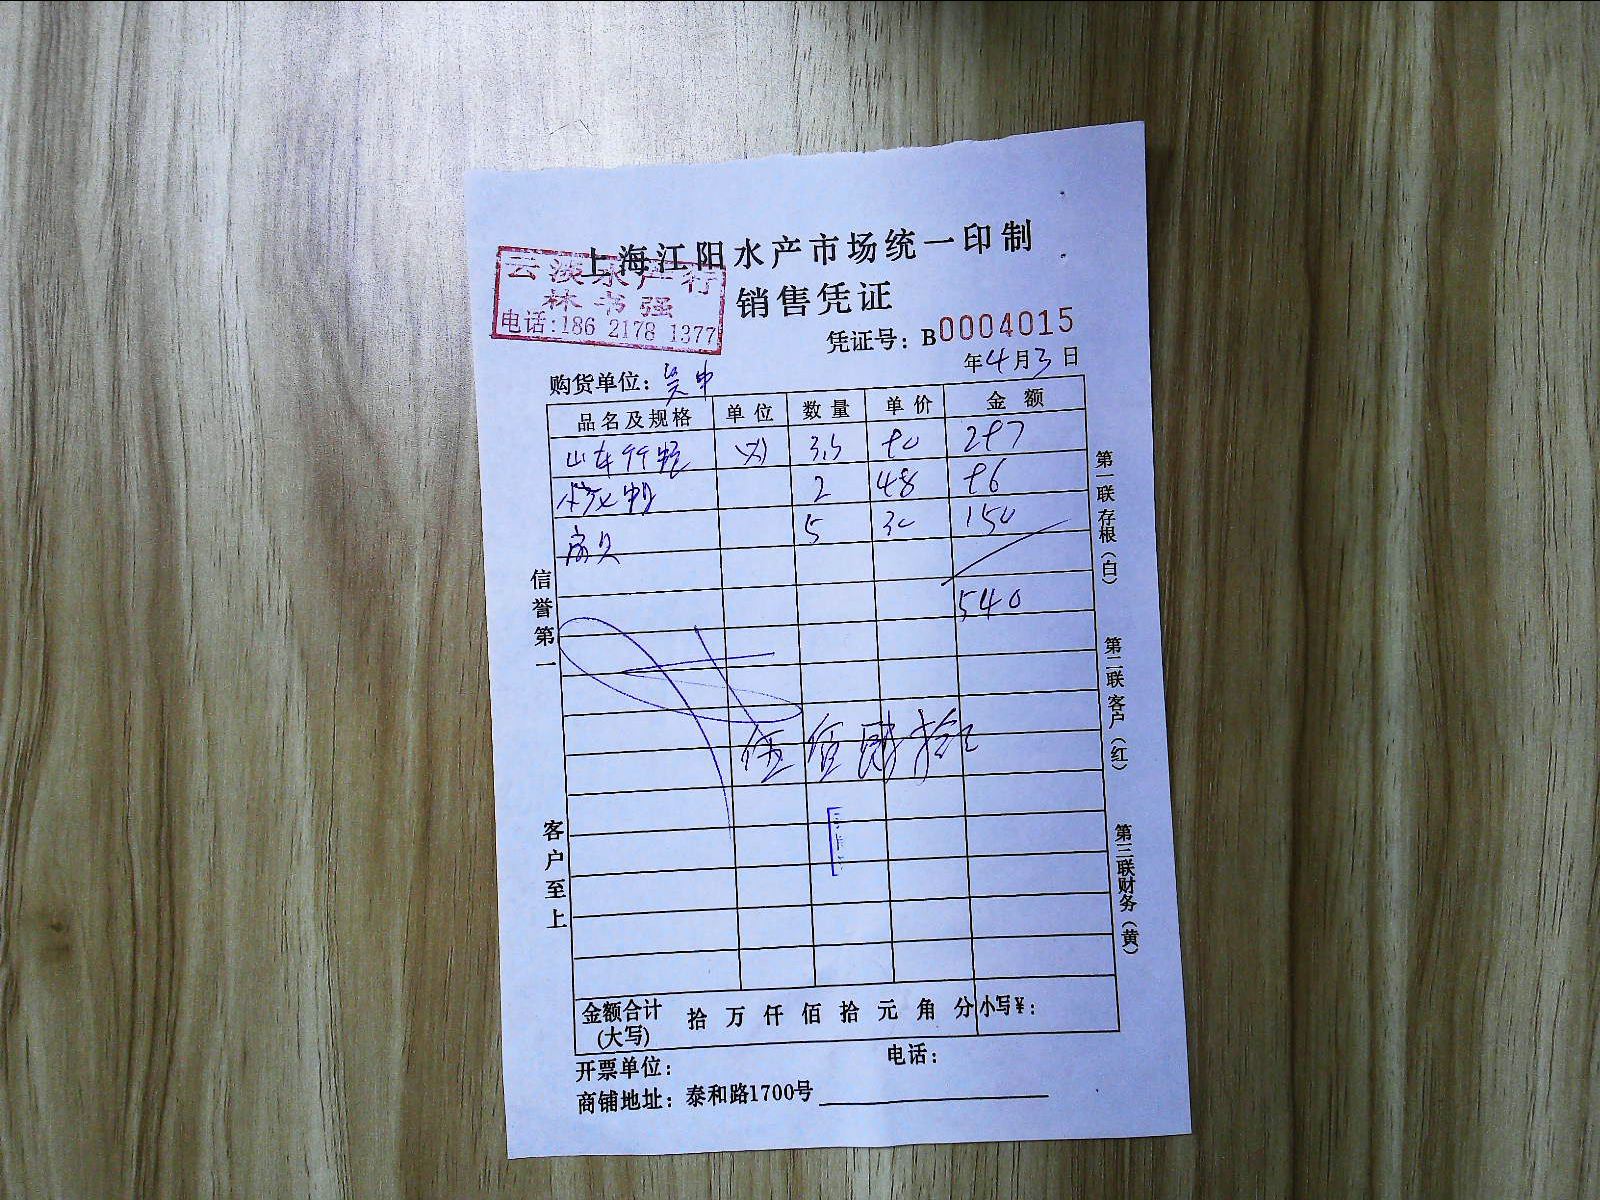 上海江阳水产市场统一印制
云淡水产行
林书强
电话:186 2178 1377
销售凭证
凭证号: B0004015
年4月3日
购货单位:
品名及规格 单位 数量 单价 金额
山东竹蛏 3.3 90 297
2 48 96
扇贝 5 30 150
540
伍佰肆拾元
信誉第一
客户至上
第一联存根(白)
第二联客户(红)
第三联财务(黄)
金额合计(大写) 拾 万 仟 佰 拾 元 角 分 小写¥:
开票单位: 电话:
商铺地址: 泰和路1700号